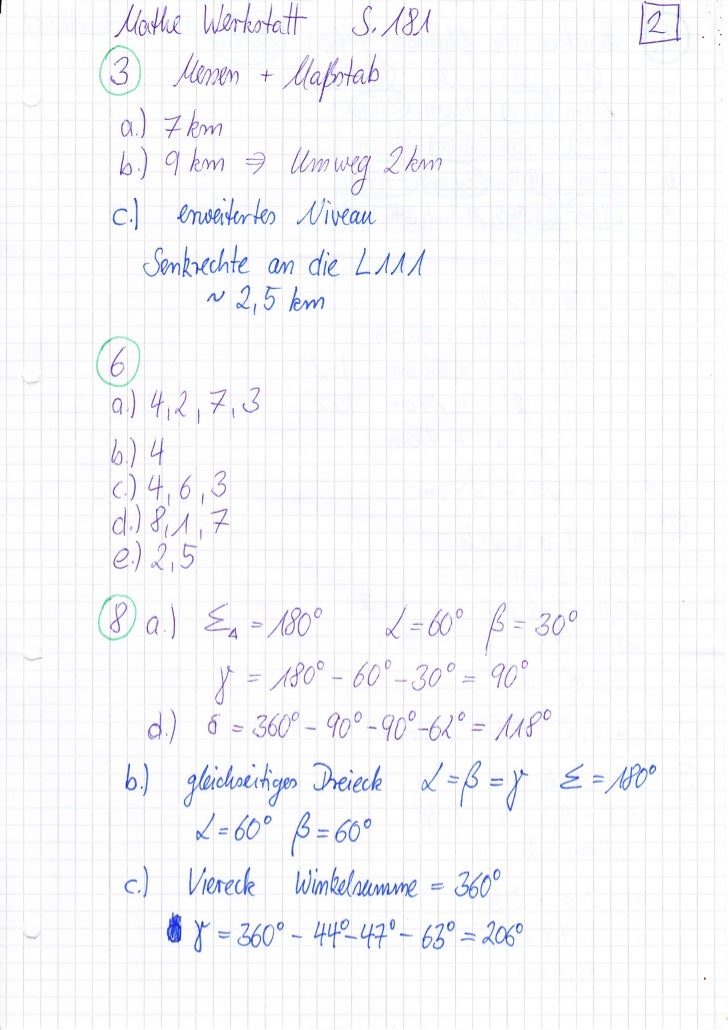 Mathe Werkstatt S. 181 2
3 Messen + Maßstab
a.) 7km
b.) 9 km ⇒ Umweg 2km
c.) erweitertes Niveau
Senkrechte an die L111
~ 2,5 km
6
a.) 4, 2, 7, 3
b.) 4
c.) 4, 6, 3
d.) 8, 1, 7
e.) 2, 5
8 a.) Σ∆ = 180° α = 60° β = 30°
γ = 180° - 60° - 30° = 90°
d.) δ = 360° - 90° - 90° - 62° = 118°
b.) gleichseitiges Dreieck α = β = γ Σ = 180°
α = 60° β = 60°
c.) Viereck Winkelsumme = 360°
γ = 360° - 44° - 47° - 63° = 206°